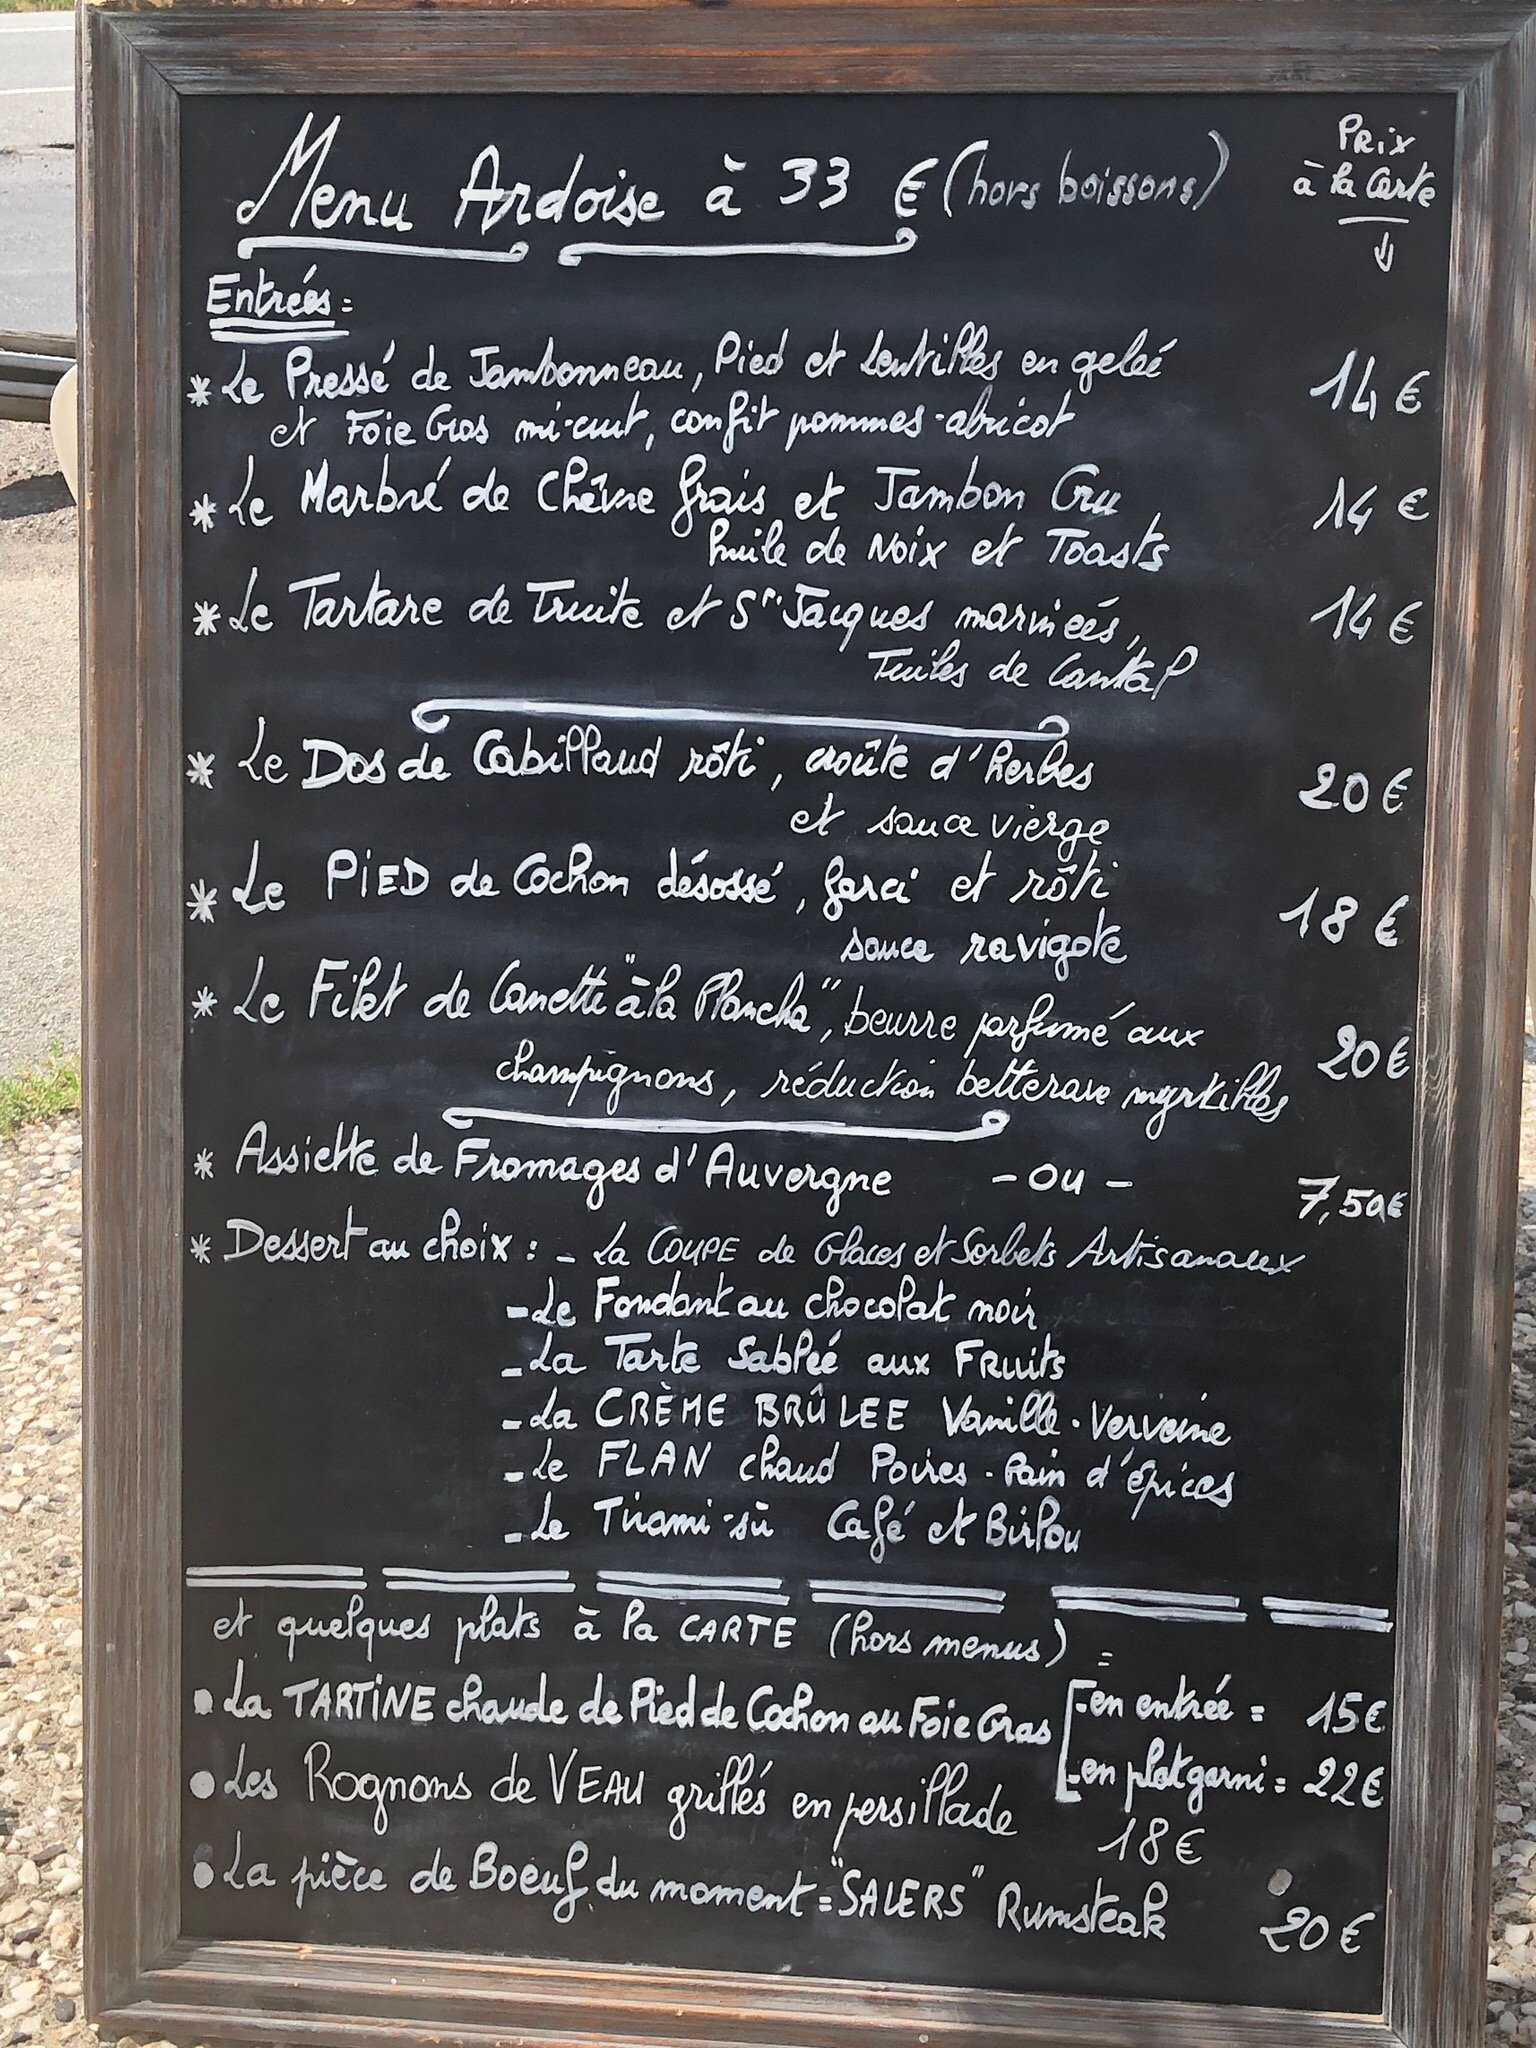 Menu Ardoise à 33 € (hors boissons)
Prix
à la Carte
Entrées =
* Le Pressé de Jambonneau, Pied et Lentilles en gelée
et Foie Gras mi-cuit, confit pommes-abricot
14 €
* Le Marbré de Chêvre frais et Jambon Cru
huile de Noix et Toasts
14 €
* Le Tartare de Truite et St Jacques marinées,
Tuiles de Cantal
14 €
* Le Dos de Cabillaud rôti, croûte d'herbes
et sauce vierge
20 €
* Le PIED de Cochon désossé, farci et rôti
sauce ravigote
18 €
* Le Filet de Canette "à la Plancha", beurre parfumé aux
champignons, réduction betterave myrtilles
20 €
* Assiette de Fromages d'Auvergne - OU -
7,50 €
* Dessert au choix : - La COUPE de Glaces et Sorbets Artisanaux
- Le Fondant au chocolat noir
- La Tarte Sablée aux FRuits
- La CRÈME BRÛLEE Vanille - Verveine
- Le FLAN chaud Poires - Pain d'épices
- Le Tirami-sù Café et Birlou
et quelques plats à la CARTE (hors menus) =
• La TARTINE chaude de Pied de Cochon au Foie Gras [- en entrée = 15 €
- en plat garni = 22 €
• Les Rognons de VEAU grillés en persillade 18 €
• La pièce de Boeuf du moment = "SALERS" Rumsteak 20 €